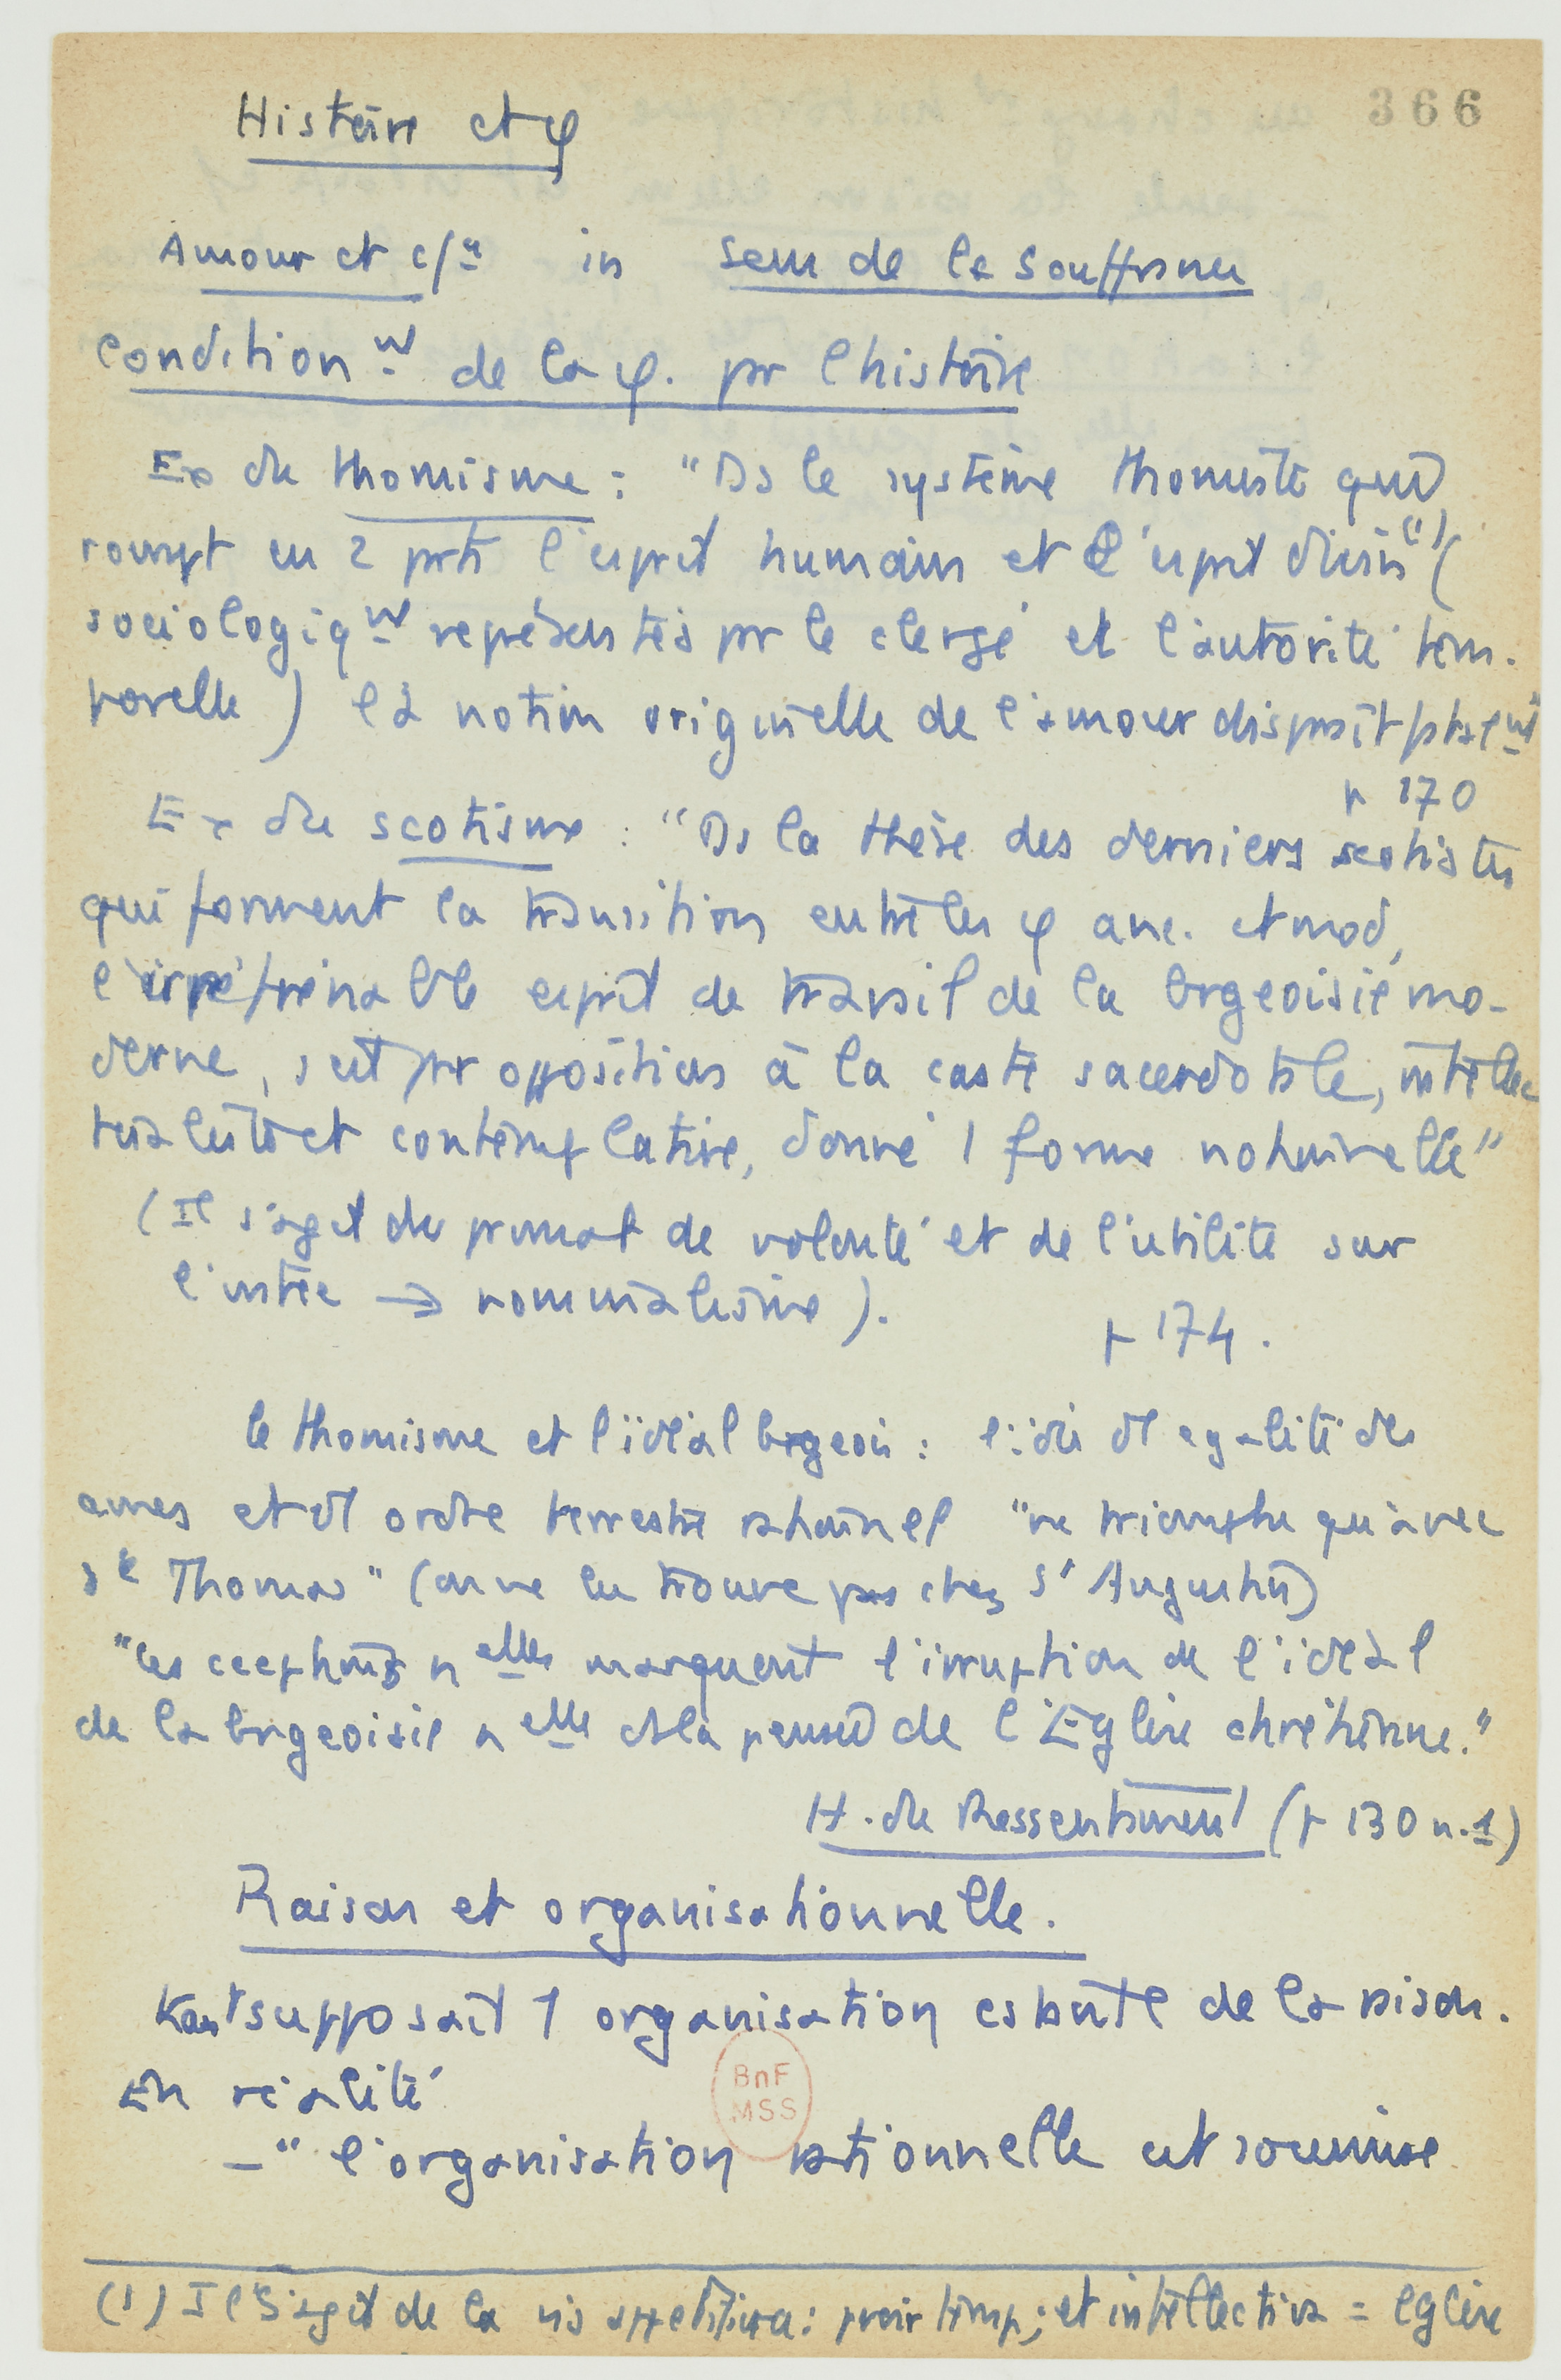 366
Histoire et φ
Amour et c/ce in Sens de la Souffrance
Conditionnt de la φ. pr l'histoire
Ex du thomisme : "Ds le système thomiste qui
rompt en 2 prts l'esprit humain et l'esprit divin" (1) (
sociologiqnt représentés pr le clergé et l'autorité tem-
porelle) la notion originelle de l'amour disparaît
p 170
Ex du scotisme : "Ds la thèse des derniers scotistes
qui forment la transition entre les φ anc. et mod,
l'irréfrénable esprit de travail de la brgeoisie mo-
derne, s'est pr opposition à la caste sacerdotale, intellec
tualiste et contemplative, donné 1 forme notionnelle"
(Il s'agit du primat de volonté et de l'utilité sur
l'intec → nominalisme).
p 174.
le thomisme et l'idéal brgeois : l'idée d'l égalité des
ames et d'l ordre terrestre rationnel "ne triomphe qu'avec
St Thomas" (on ne les trouve pas chez St Augustin)
"Ces ceptions nelles marquent l'irruption de l'idéal
de la brgeoisie nelle ds la pensée de l'Eglise chrétienne."
H. du Ressentiment (p 130 n.1)
Raison et organisationnelle.
Kant supposait 1 organisation cstante de la raison.
En réalité
– "l'organisation rationnelle est soumise
BnF
MSS
(1) Il s'agit de la vis appetitiva : pvoir temp; et intellectiva = Eglise